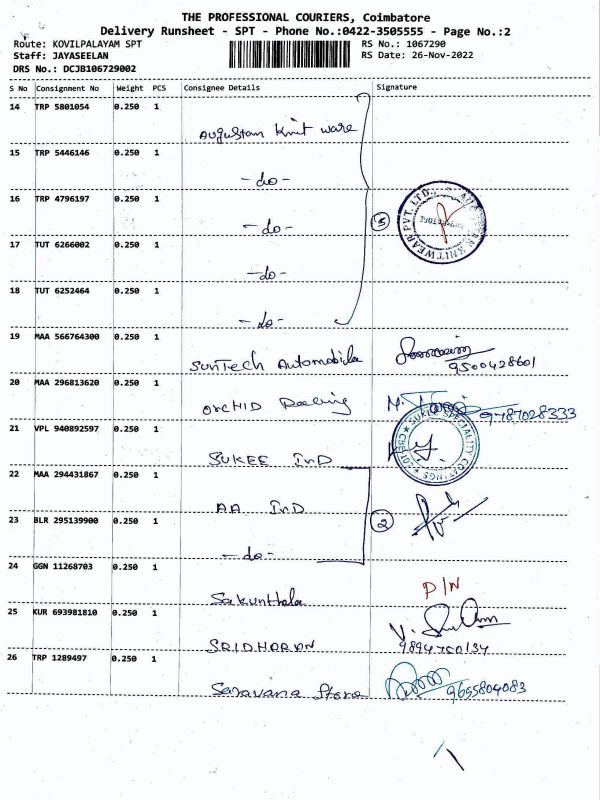 THE PROFESSIONAL COURIERS, Coimbatore
Delivery Runsheet - SPT - Phone No.:0422-3505555 - Page No.:2
Route: KOVILPALAYAM SPT RS No.: 1067290
Staff: JAYASEELAN RS Date: 26-Nov-2022
DRS No.: DCJB106729002
S No Consignment No Weight PCS Consignee Details Signature
14 TRP 5801054 0.250 1
Augustan Knit ware
15 TRP 5446146 0.250 1
-do-
16 TRP 4796197 0.250 1
-do- 5
17 TUT 6266002 0.250 1
-do-
18 TUT 6252464 0.250 1
-do-
19 MAA 566764300 0.250 1
SunTech Automobile 9500428601
20 MAA 296813620 0.250 1
ORCHID 9787028333
21 VPL 940892597 0.250 1
SUKEE IND
SUKEE SPECIALITY COATINGS
22 MAA 294431867 0.250 1
AA IND
23 BLR 295139900 0.250 1 2
-do-
24 GGN 11268703 0.250 1
Sakunthala P/N
25 KUR 693981810 0.250 1
SRIDHARAN 9894750134
26 TRP 1289497 0.250 1
Saravana Store 9655804083